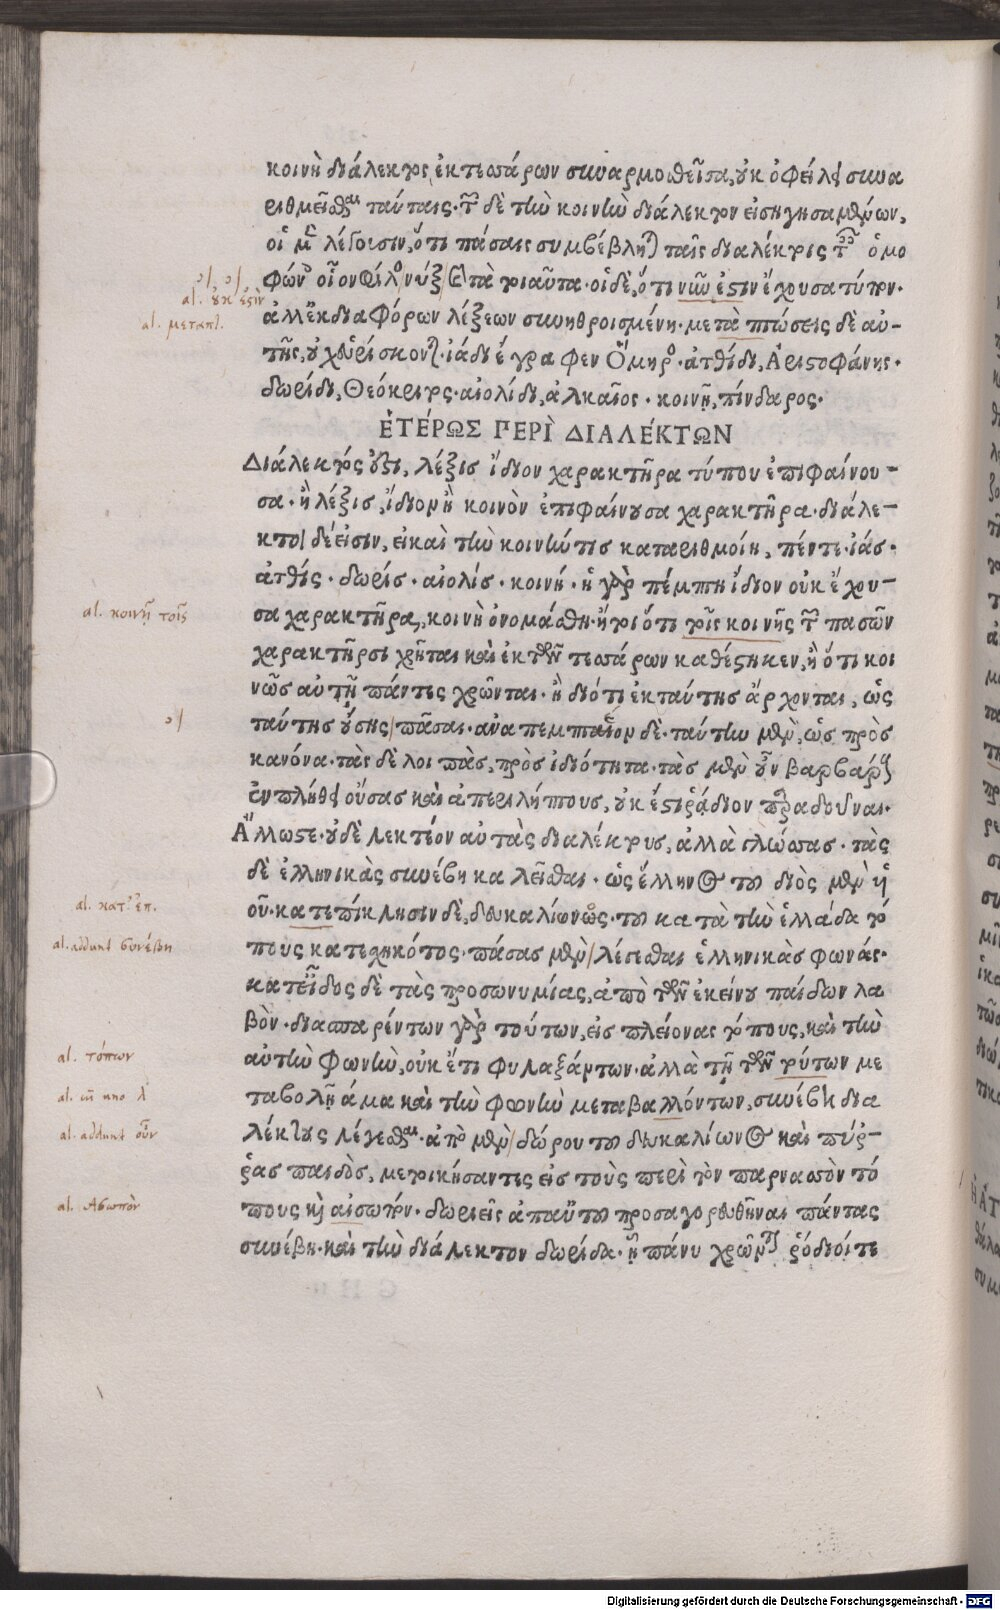 κοινὴ διάλεκτος ἐκ τεσσάρων συναρμοσθεῖσα, οὐκ ὀφείλει συνα
ριθμεῖσθαι ταύταις. τ͂ δὲ τὴν κοινὴν διάλεκτον εἰσηγησαμένων,
οἱ μὲν λέγουσιν, ὅτι πάσαις συμβέβληται ταῖς διαλέκτοις τ͂ ὁμο
φών οἷον φίλος/ νύξ/ καὶ τὰ τοιαῦτα. οἱ δὲ, ὅτι νῶν ἐστιν ἔχουσα τύπον.
al. οὐκ ἐστὶν
ἀλλ' ἐκ διαφόρων λέξεων συνηθροισμένη. μετὰ πτώσεις δὲ αὐ-
al. μεταπλ.
τῆς, οὐχ εὑρίσκονται. ἰάδι ἔγραφεν Ὅμηρος. ἀτθίδι, Ἀριστοφάνης.
δωρίδι, Θεόκριτος. αἰολίδι, ἀλκαῖος. κοινῇ, πίνδαρος.
ἙΤΕΡΩΣ ΠΕΡῚ ΔΙΑΛΕΚΤΩΝ
Διάλεκτός ἐστι, λέξις ἴδιον χαρακτῆρα τύπου ἐπιφαίνου-
σα. ἢ λέξις, ἴδιον ἢ κοινὸν ἐπιφαίνουσα χαρακτῆρα. διάλε-
κτοι δέ εἰσιν, εἰ καὶ τὴν κοινὴν τις καταριθμοίη, πέντε. ἰάς.
ἀτθίς. δωρίς. αἰολίς. κοινή. ἡ γὰρ πέμπτη ἴδιον οὐκ ἔχου-
σα χαρακτῆρα, κοινὴ ὀνομάσθη. ἤτοι ὅτι τοῖς κοινῆς τ͂ πασῶν
al. κοινῇ τοῖς
χαρακτῆρσι χρῆται καὶ ἐκ τῶν τεσσάρων καθέστηκεν, ἢ ὅτι κοι
νῶς αὐτῇ πάντες χρῶνται. ἢ διότι ἐκ ταύτης ἄρχονται, ὡς
ταύτης οὔσης/ πᾶσαι. ἀναπεμπαῖον δὲ. ταύτην μὲν, ὡς πρὸς
κανόνα. τὰς δὲ λοιπὰς, πρὸς ἰδιότητα. τὰς μὲν οὖν βαρβάρους
ἐν πλήθει οὔσας καὶ ἀπεριλήπτους, οὐκ ἔστι ῥᾴδιον παραδοῦναι.
Ἄλλως τε. οὐδὲ λεκτέον αὐτὰς διαλέκτους, ἀλλὰ γλώσσας. τὰς
δὲ ἑλληνικὰς συνέβη καλεῖσθαι. ὡς ἕλληνος τοῦ διὸς μὲν υἱ
οῦ. κατεπίκλησιν δὲ, δευκαλίωνος. τοῦ κατὰ τὴν ἑλλάδα τό
al. κατ' ἐπ.
πους κατεσχηκότος. πάσας μὲν/ λέγεσθαι ἑλληνικὰς φωνάς.
al. addunt συνέβη
κατ' εἶδος δὲ τὰς προσωνυμίας, ἀπὸ τῶν ἐκείνου παίδων λα
βὸν. διασπαρέντων γὰρ τούτων, εἰς πλείονας τόπους, καὶ τὴν
αὐτὴν φωνὴν, οὐκ ἔτι φυλαξάντων. ἀλλὰ τῇ τῶν τρύτων με
al. τόπων
ταβολῇ ἅμα καὶ τὴν φωνὴν μεταβαλλόντων, συνέβη δια
λέκτους λέγεσθαι. ἀπὸ μὲν/ δώρου τοῦ δευκαλίωνος καὶ πύῤ-
al. addunt οὖν
ῥας παιδὸς, μετοικήσαντες εἰς τοὺς περὶ τὸν παρνασσὸν τό
πους καὶ αἰσωπὸν. δωριεῖς ἀπαὐτοῦ προσαγορευθῆναι πάντας
al. Ἀσωπὸν
συνέβη. καὶ τὴν διάλεκτον δωρίδα. ᾗ πάνυ χρῶνται ῥόδιοί τε